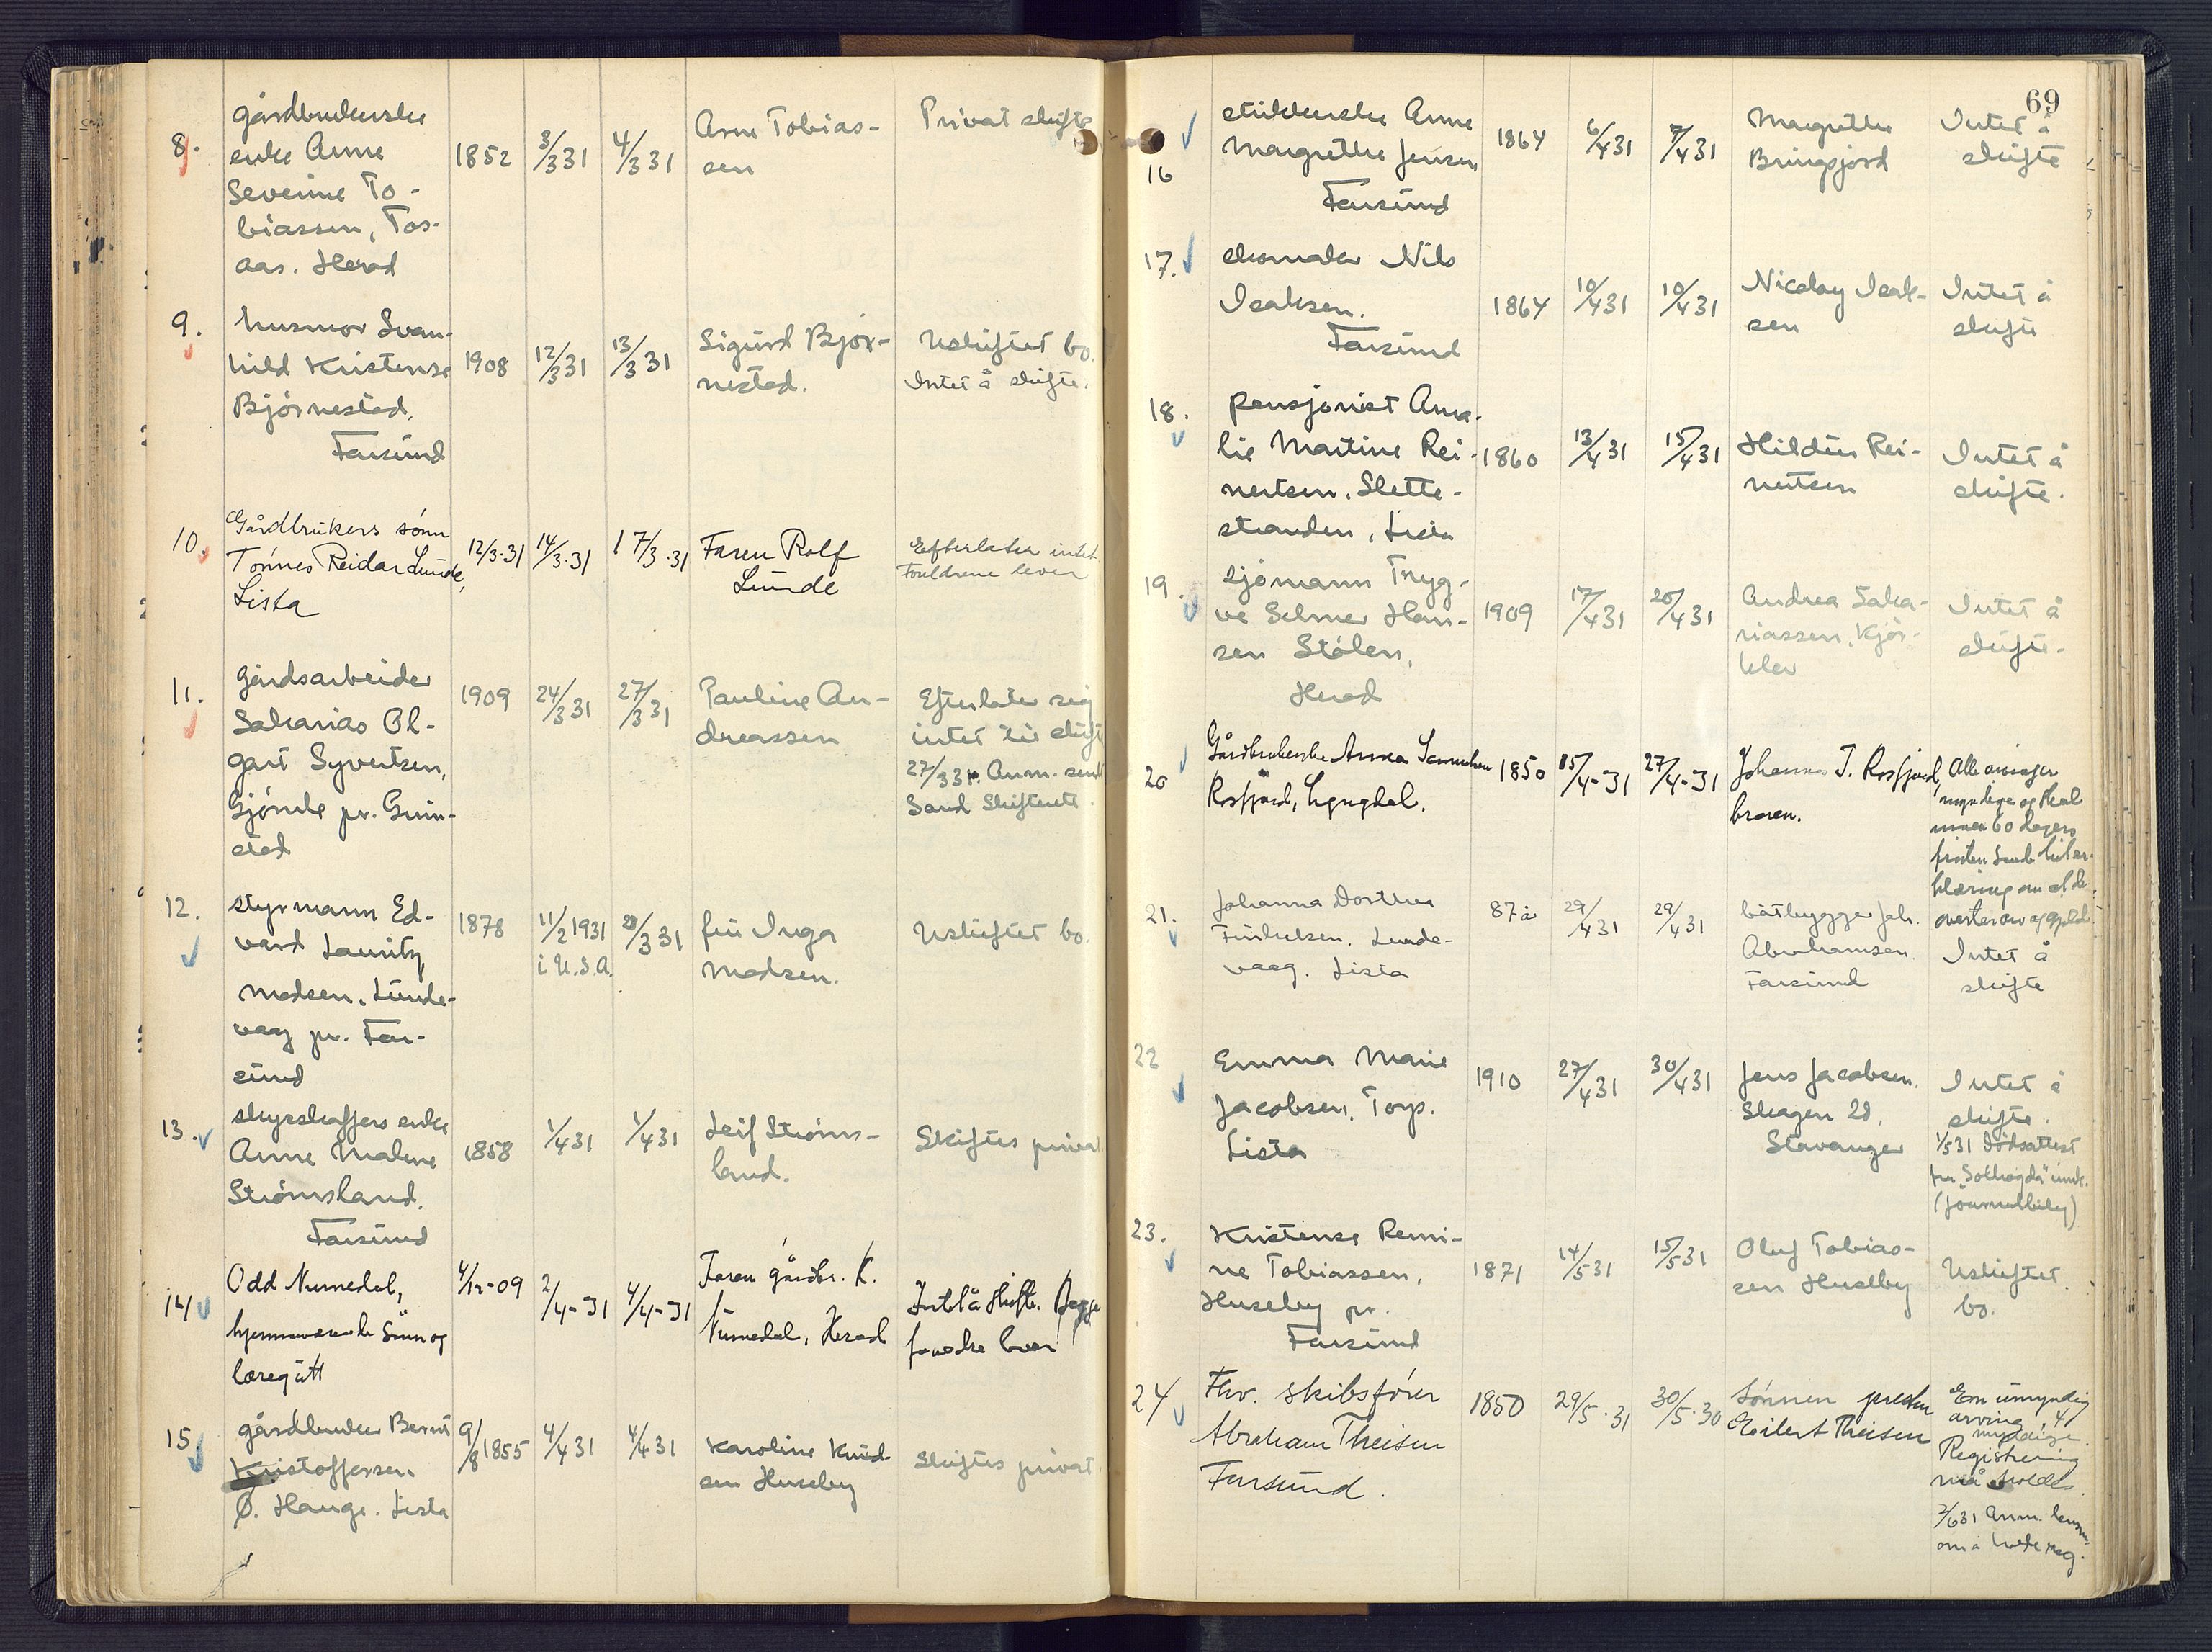 8.
gårdbrukerske
enke Anne
Severine To-
biassen, Tos-
aas. Herad
1852
3/3 31
4/3 31
Arne Tobias-
sen
Privat skifte
9.
husmor Svan-
hild Kristense
Bjørnestad.
Farsund
1908
12/3 31
13/3 31
Sigurd Bjør-
nestad.
Uskiftet bo.
Intet å skifte.
10.
Gårdbrukers sønn
Tønnes Reidar Lunde,
Lista
12/3.31
14/3.31
17/3.31
Faren Rolf
Lunde
Efterlater intet
Foreldrene lever
11.
gårdsarbeider
Sakarias Ol-
gart Syvertsen,
Gjømle pr. Grim-
stad
1909
24/3 31
27/3 31
Pauline An-
dreassen
Efterlater sig
intet til skifte
27/3 31. Anm. sendt
Sand Skifterett.
12.
styrmann Ed-
vard Lauritz
Madsen, Lunde-
vaag pr. Far-
sund
1878
11/2 1931
i U.S.A.
28/3 31
fru Inga
Madsen.
Uskiftet bo.
13.
skysskaffers enke
Anne Malene
Strømsland.
Farsund
1858
1/4 31
1/4 31
Leif Strøms-
land.
Skiftes privat
14
Odd Numedal,
hjemmeværende Sønn og
læregutt
4/12-09
2/4-31
4/4-31
Faren gårdbr. K.
Numedal, Herad
Intet å skifte. Begge
foreldre lever
15.
gårdbruker Bernt
Kristoffersen.
Ø. Hauge. Lista
9/8 1855
4/4 31
4/4 31
Karoline Knud-
sen Huseby
Skiftes privat
69
16
Anne
Margrethe Jensen
Farsund
1864
6/4 31
7/4 31
Margrethe
Bringsjord
Intet å
skifte
17.
skomaker Nils
Isaksen.
Farsund
1864
10/4 31
10/4 31
Nicolay Isak-
sen
Intet å
skifte
18.
pensjonist Ama-
lie Martine Rei-
nertsen, Slette-
stranden, Lista
1860
13/4 31
15/4 31
Hildur Rei-
nertsen
Intet å
skifte.
19.
sjømann Tryg-
ve Selmer Han-
sen Stølen,
Herad
1909
17/4 31
20/4 31
Andrea Saka-
riassen, Kjør-
klev
Intet å
skifte.
20
Gårdbrukerske Anna Samuelsen
Rosfjord, Lyngdal.
1850
15/4-31
27/4-31
Johannes T. Rosfjord,
broren.
Alle arvinger
myndige og skal
innen 60 dagers
fristen sende hit er-
klæring om at de
overtar arv og gjeld.
21.
Johanna Dorthea
Lunde-
vaag. Lista
87 år
29/4 31
29/4 31
båtbygger Joh.
Abrahamsen.
Farsund
Intet å
skifte
22
Emma Marie
Jacobsen, Torp.
Lista
1910
27/4 31
30/4 31
Jens Jacobsen.
Skagen 28,
Stavanger
Intet å
skifte.
1/5 31 Dødsattest
fra "Solhøgda" innk.
(journalbilag)
23.
Kristense Remi-
ne Tobiassen,
Huseby pr.
Farsund
1871
14/5 31
15/5 31
Oluf Tobias-
sen Huseby
Uskiftet
bo.
24
Fhv. skibsfører
Abraham Theisen
Farsund.
1850
29/5.31
30/5.30
Sønnen presten
Eilert Theisen
En umyndig
arving, 4
myndige.
Registrering
må holdes.
2/6 31 Anm. lensm.
om å holde reg.